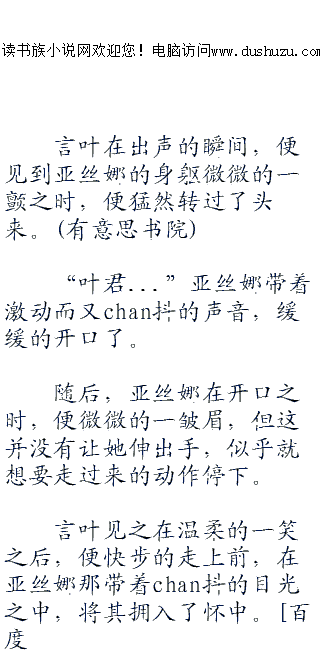 读书族小说网欢迎您！电脑访问www.dushuzu.com
言叶在出声的瞬间，便
见到亚丝娜的身躯微微的一
颤之时，便猛然转过了头
来。(有意思书院)
“叶君...”亚丝娜带着
激动而又chan抖的声音，缓
缓的开口了。
随后，亚丝娜在开口之
时，便微微的一皱眉，但这
并没有让她伸出手，似乎就
想要走过来的动作停下。
言叶见之在温柔的一笑
之后，便快步的走上前，在
亚丝娜那带着chan抖的目光
之中，将其拥入了怀中。[百
度